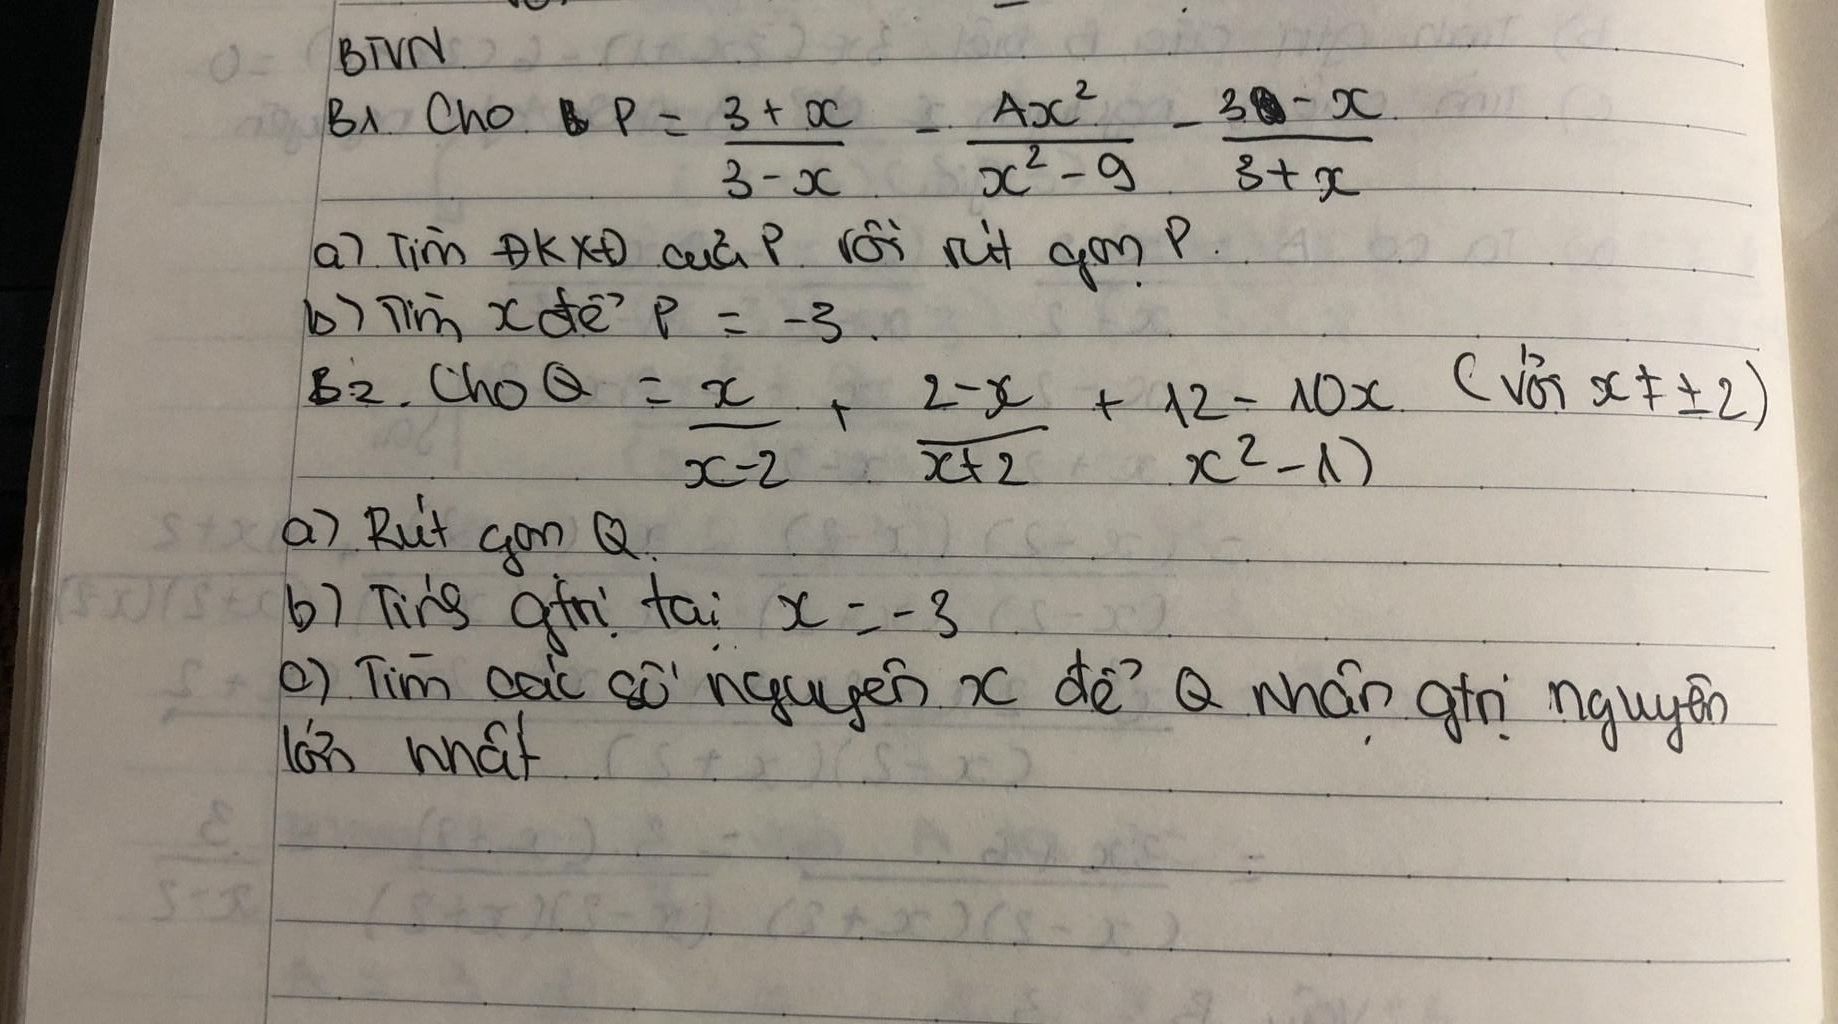 BTVN
B1. Cho P = (3 + x)/(3 - x) - (4x²)/(x² - 9) - (3 - x)/(3 + x)
a) Tìm ĐKXĐ của P rồi rút gọn P.
b) Tìm x để P = -3.
B2. Cho Q = x/(x-2) + (2-x)/(x+2) + (12 - 10x)/(x² - 4) (với x ≠ ±2)
a) Rút gọn Q.
b) Tính gtrị tại x = -3
c) Tìm các số nguyên x để Q nhận gtrị nguyên
lớn nhất